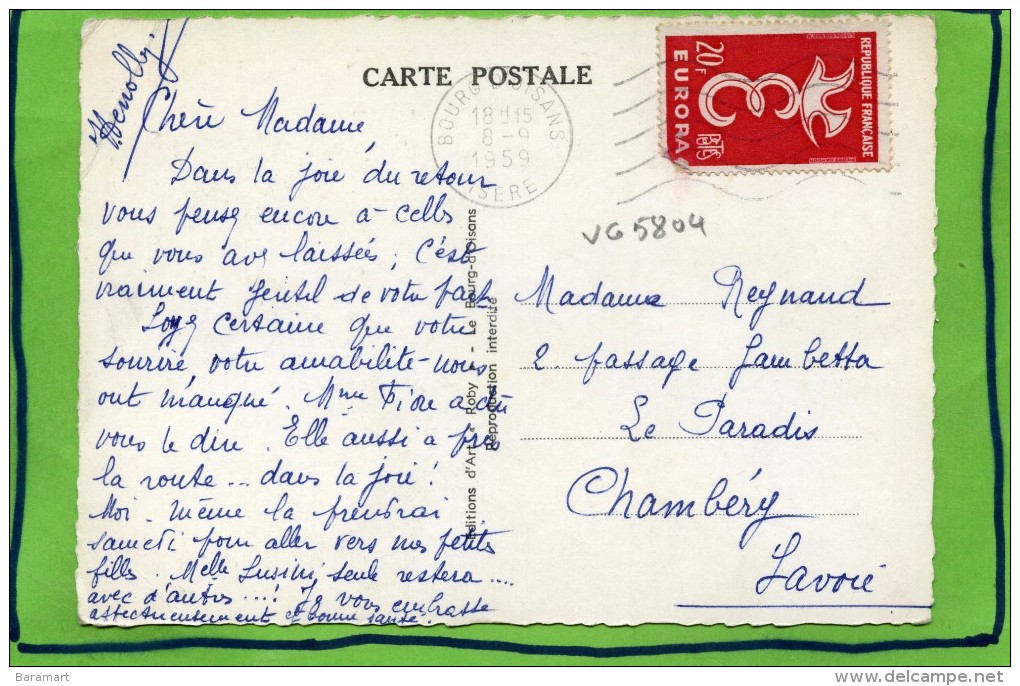 CARTE POSTALE
BOURG D'OISANS
18H15
8-9
1959
ISERE
REPUBLIQUE FRANÇAISE
20F
EUROPA
POSTES
VG5804
Chère Madame
Dans la joie du retour
vous pensez encore à celles
que vous avez laissées, c'est
vraiment gentil de votre part
Soyez certaine que votre
sourire votre amabilité nous
ont manqué. Mme Fiore a dû
vous le dire. Elle aussi a pris
la route... dans la joie!
Moi-même la prendrai
samedi pour aller vers mes petites
filles. Melle Susini, seule restera....
avec d'autres...! Je vous embrasse
affectueusement et bonne santé.
Editions d'Art Roby - Le Bourg-d'Oisans
Reproduction interdite
Madame Reynaud
2. passage Gambetta
Le Paradis
Chambéry
Savoie
Baramart
http://www.delcampe.net